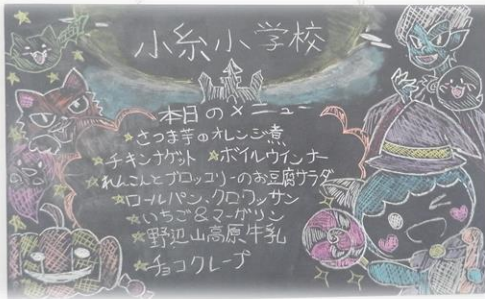 小糸小学校
本日のメニュー
☆さつま芋のオレンジ煮
☆チキンナゲット ☆ボイルウインナー
☆れんこんとブロッコリーのお豆腐サラダ
☆ロールパン、クロワッサン
☆いちご&マーガリン
☆野辺山高原牛乳
☆チョコクレープ